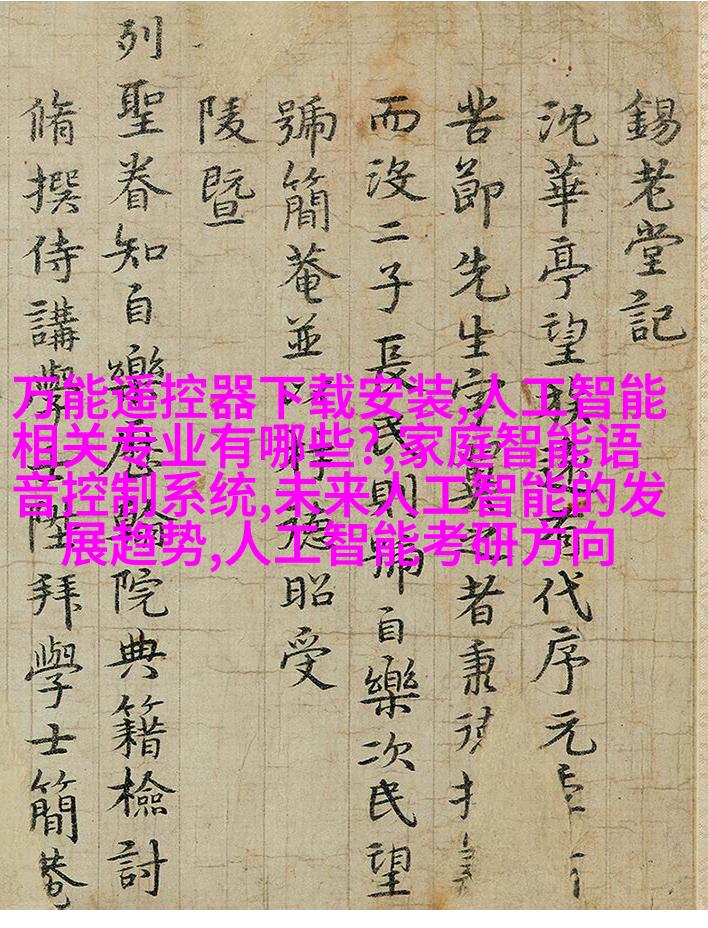 錫老堂記
沈華亭望族代序元
苦節先生字翼之者秉
而沒二子長民則號自樂次民望
號簡菴並以德昭受
陵暨
列聖眷知自樂歷翰院典籍檢討
脩撰侍講學士陞拜學士簡菴
万能遥控器下载安装,人工智能
相关专业有哪些?,家庭智能语
音控制系统,未来人工智能的发
展趋势,人工智能考研方向